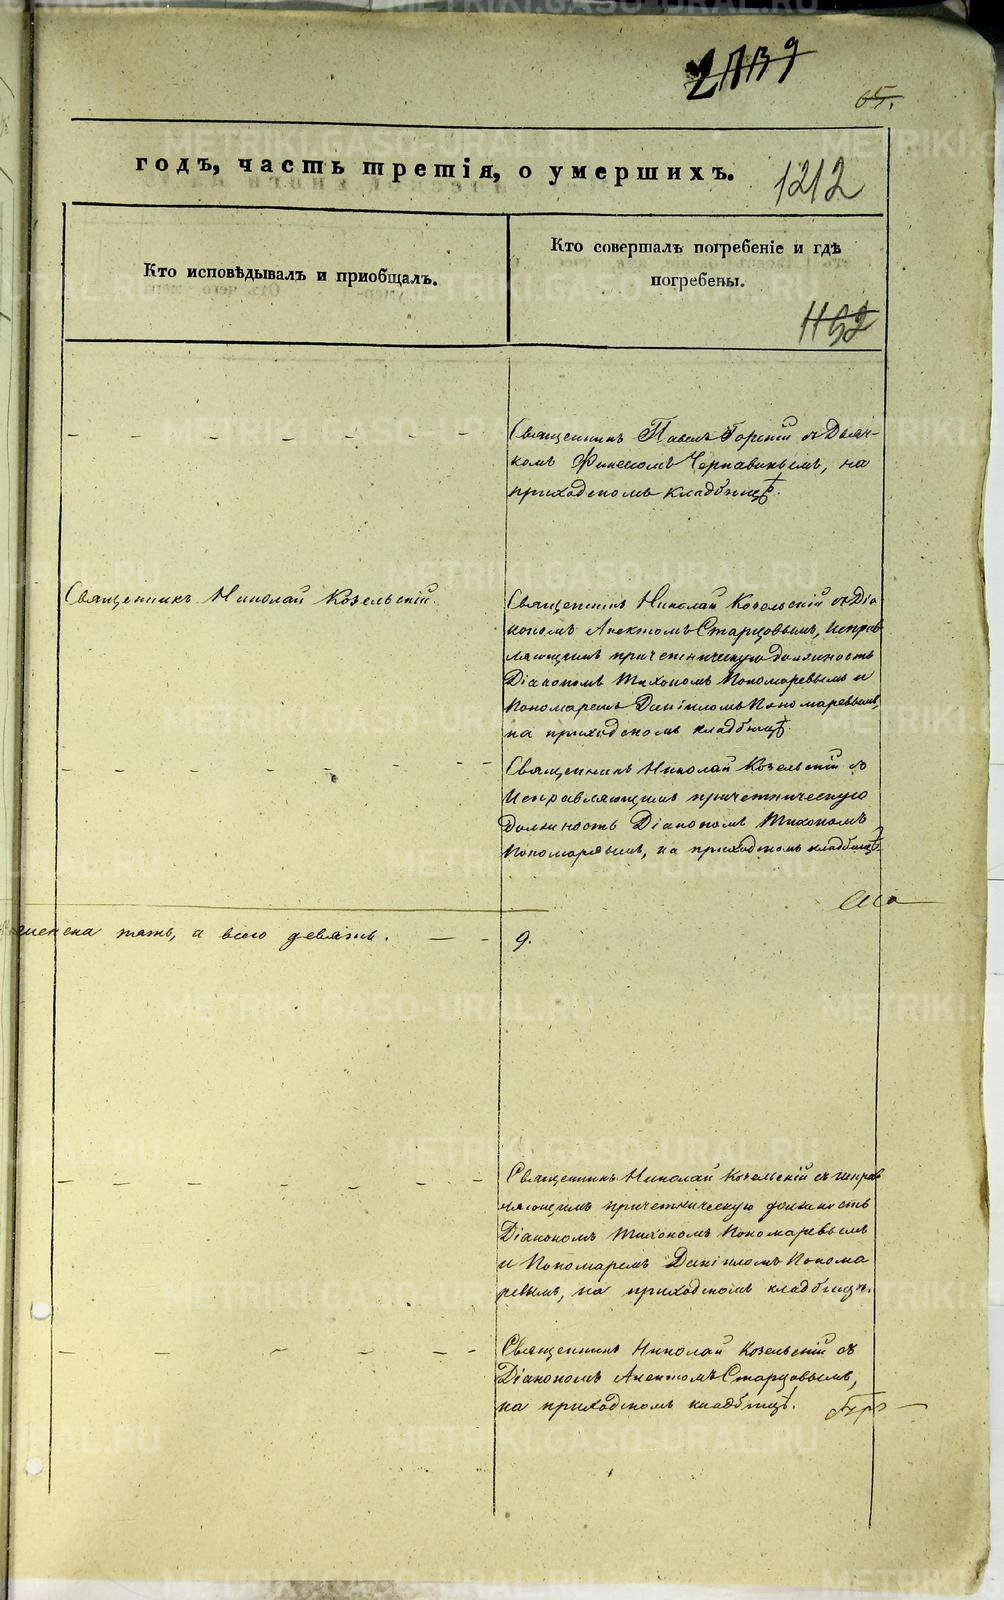 65.
годъ, часть третія, о умершихъ.
1212
Кто исповѣдывалъ и приобщалъ.
Кто совершалъ погребеніе и гдѣ
погребены.
1192
Священникъ Павелъ Горскій съ Дьяч-
комъ Чернавинымъ, на
приходскомъ кладбищѣ.
Священникъ Николай Козельскій.
Священникъ Николай Козельскій съ Діа
кономъ Анектомъ Старцовымъ, исправ
ляющимъ причетническую должность
Діакономъ Тихономъ Пономаревымъ и
Пономаремъ Даніиломъ Пономаревымъ,
на приходскомъ кладбищѣ.
Священникъ Николай Козельскій съ
Исправляющимъ причетническую
должность Діакономъ Тихономъ
Пономаревымъ, на приходскомъ кладбищѣ.
женска пять, а всего девять. 9.
Священникъ Николай Козельскій съ исправ
ляющимъ причетническую должность
Діакономъ Тихономъ Пономаревымъ
и Пономаремъ Даніиломъ Понома
ревымъ, на приходскомъ кладбищѣ.
Священникъ Николай Козельскій съ
Діакономъ Анектомъ Старцовымъ,
на приходскомъ кладбищѣ.
METRIKI.GASO-URAL.RU